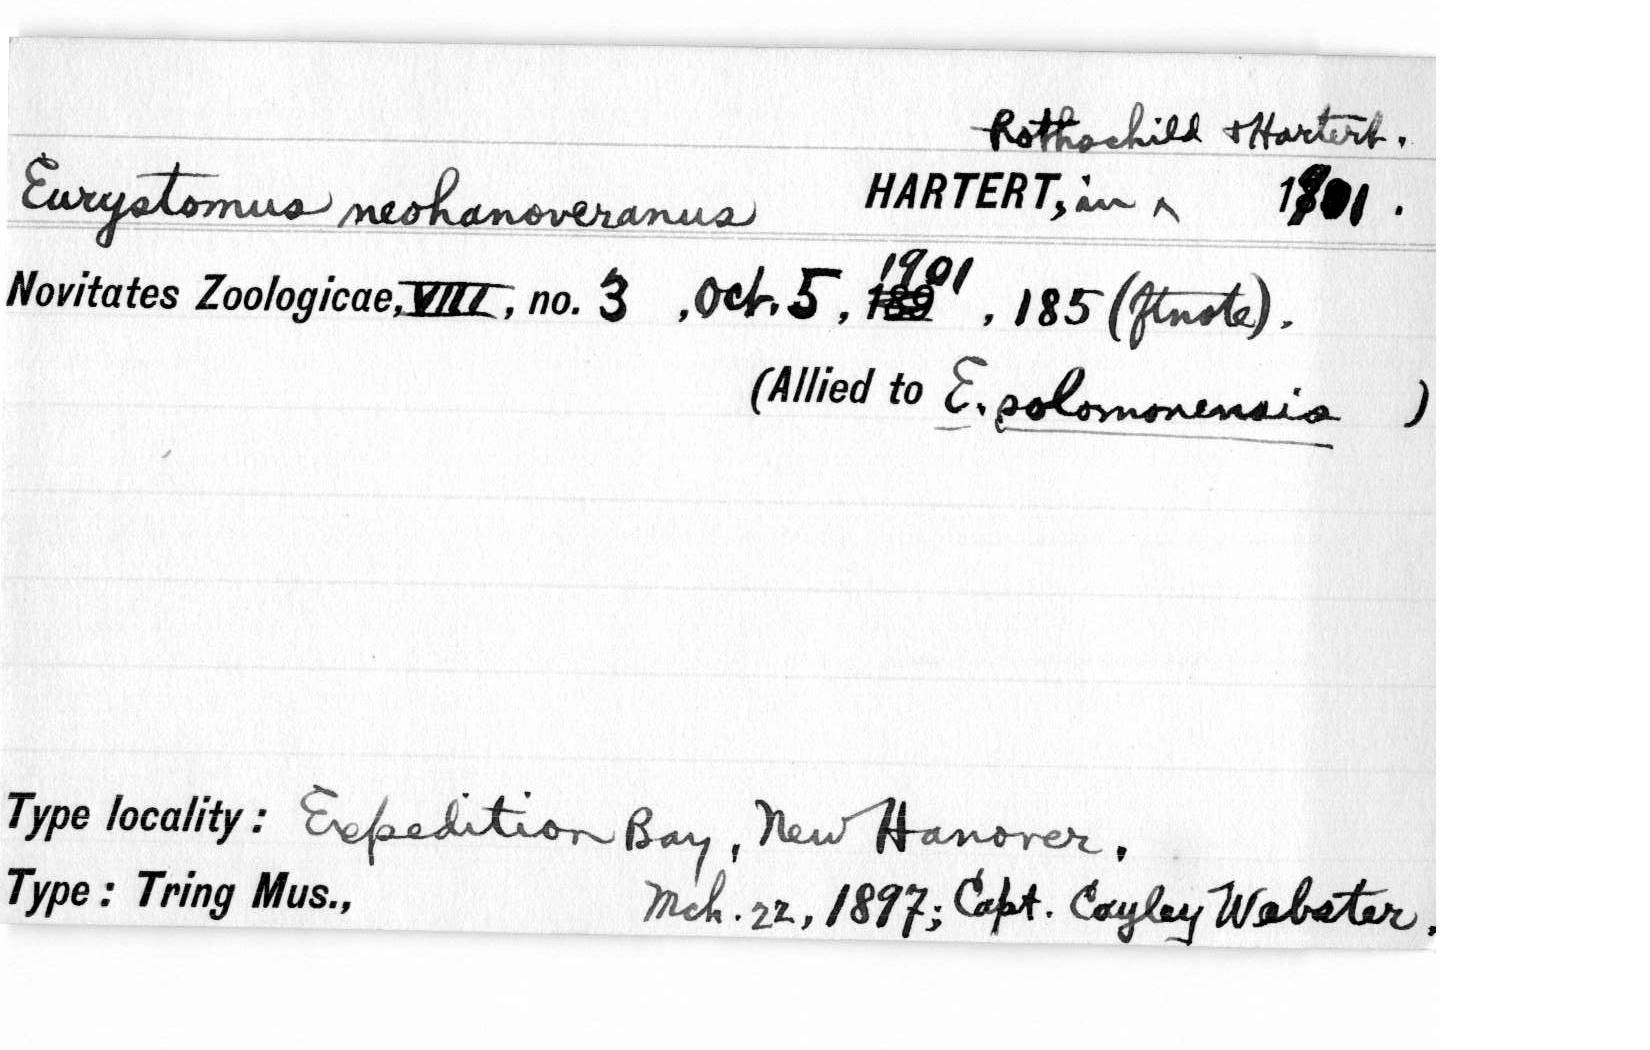 Rothschild & Hartert.
Eurystomus neohanoveranus HARTERT, in ^ 1901.
Novitates Zoologicae, VIII, no. 3, Oct. 5, 189 1901, 185 (ftnote).
(Allied to E. solomonensis )
Type locality: Expedition Bay, New Hanover.
Type: Tring Mus., Mch. 22, 1897; Capt. Cayley Webster.